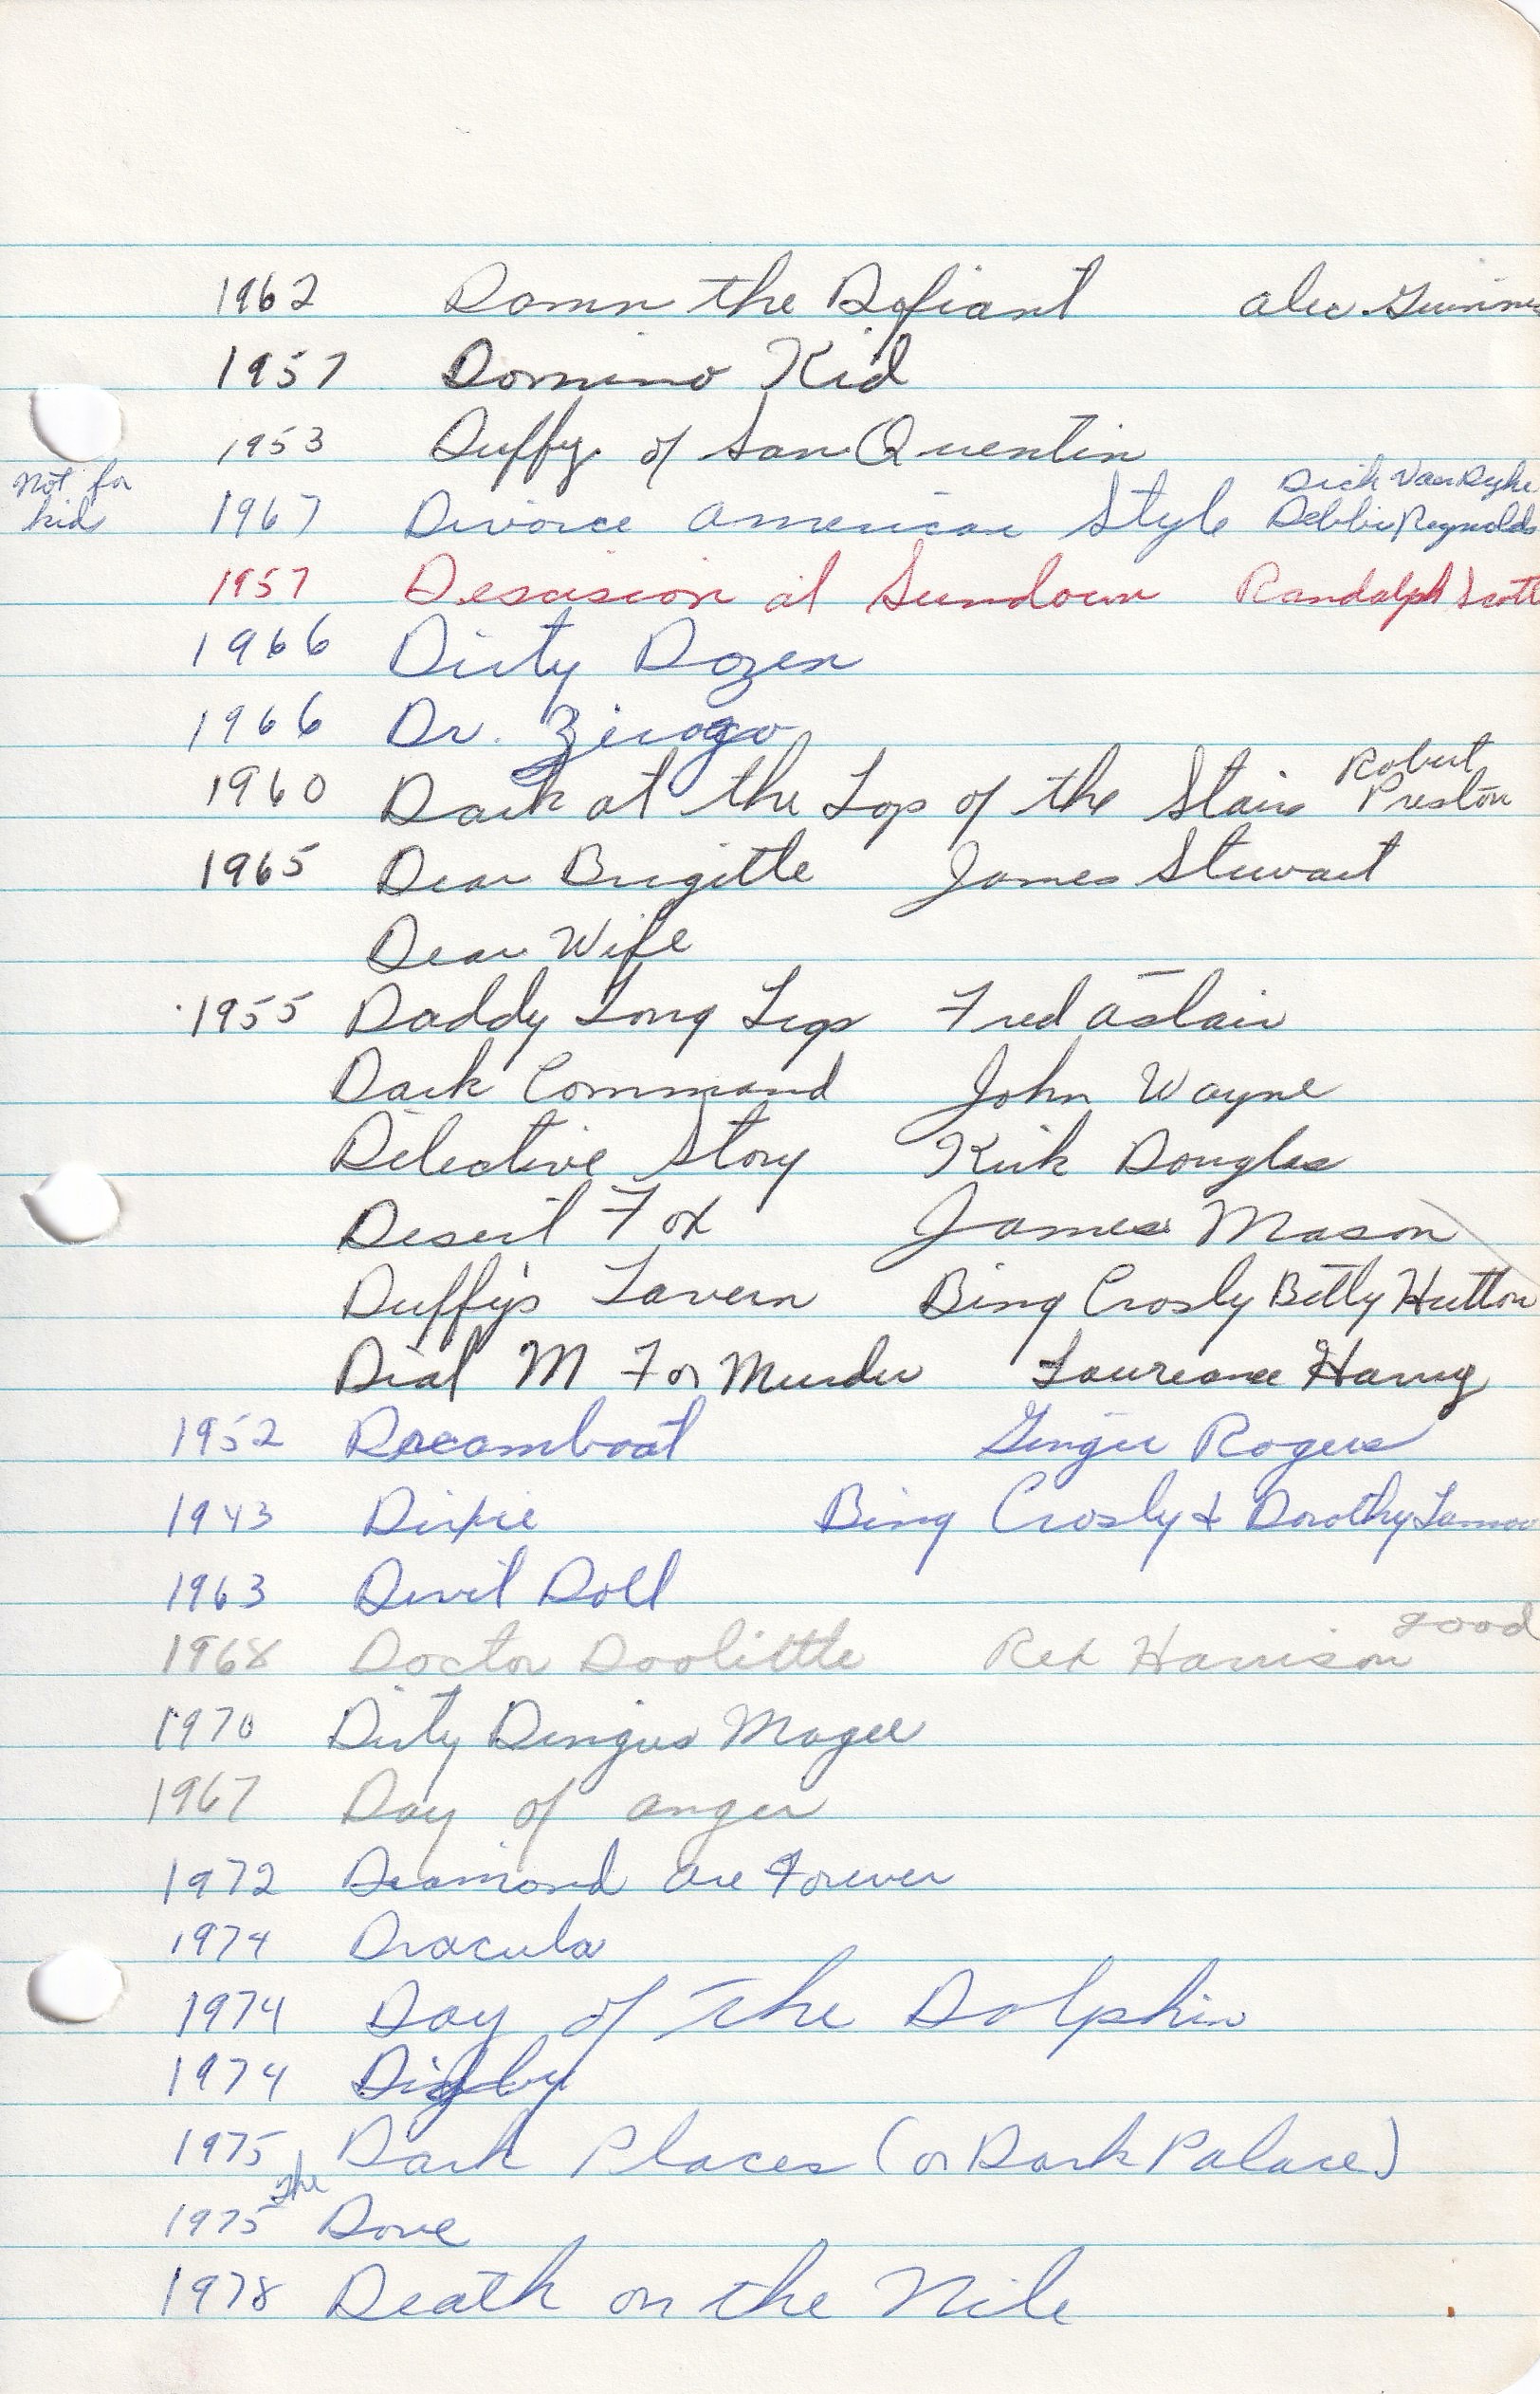 1962 Damn the Defiant alec Guinnes
1957 Domino Kid
1953 Duffy of San Quentin
Not for kid
Dick Van Dyke
1967 Divorce american Style Debbie Reynolds
1957 Descision at Sundown Randolph Scott
1966 Dirty Dozen
1966 Dr. Zivago
1960 Dark at the Top of the Stairs Robert Preston
1965 Dear Brigitte James Stewart
Dear Wife
1955 Daddy Long Legs Fred astair
Dark Command John Wayne
Detective Story Kirk Douglas
Desert Fox James Mason
Duffy's Tavern Bing Crosby Betty Hutton
Dial M For Murder Laurence Harvey
1952 Dreamboat Ginger Rogers
1943 Dixie Bing Crosby & Dorothy Lamou
1963 Devil Doll
1968 Doctor Doolittle Rex Harrison good
1970 Dirty Dingus Magee
1967 Day of anger
1972 Diamond are Forever
1974 Dracula
1974 Day of The Dolphin
1974 Digby
1975 Dark Places (or Dark Palace)
1975 The Dove
1978 Death on the Nile